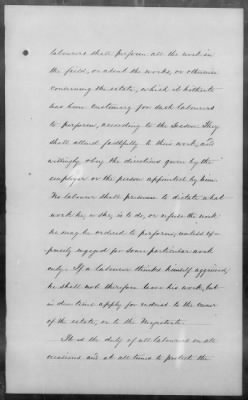 labourers shall perform all the work in
the field, or about the works, or otherwise
concerning the estate, which it hitherto
has been customary for such labourers
to perform, according to the Season. They
shall attend faithfully to their work, and
willingly obey the directions given by the
employer or the person appointed by him.
No labourer shall presume to dictate what
work he, or she, is to do, or refuse the work
he may be ordered to perform, unless ex-
pressly engaged for some particular work
only. If a labourer thinks himself aggrieved,
he shall not therefore leave his work, but
in due time apply for redress to the owner
of the estate, or to the Magistrate.
It is the duty of all labourers on all
occasions and at all times to protect the